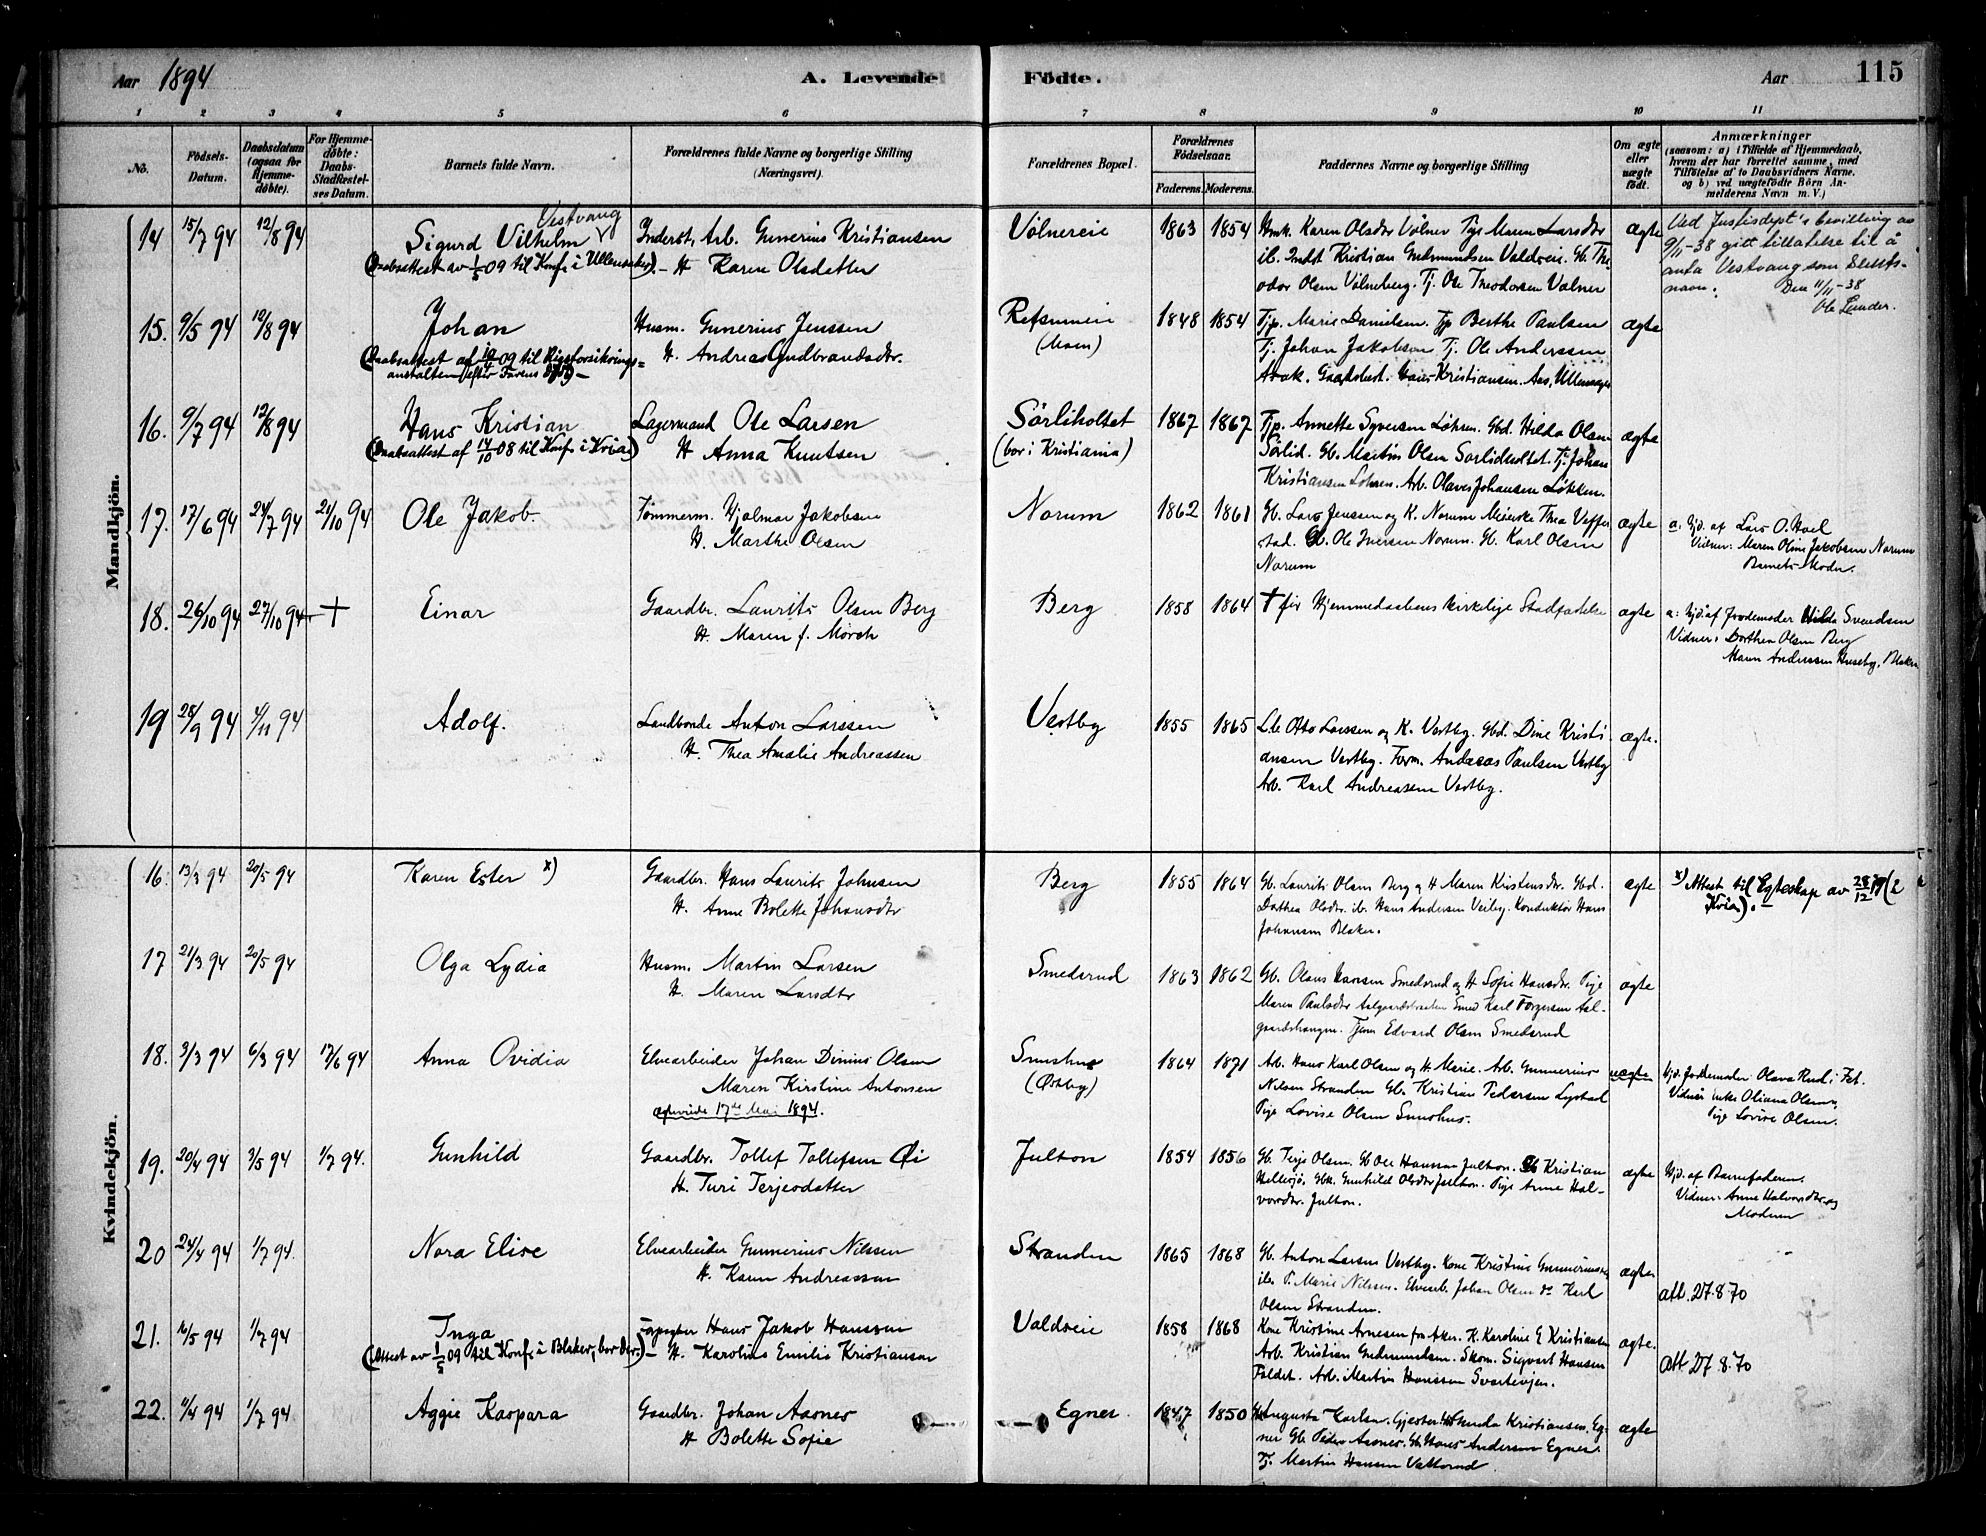 Aar 1894 A. Levende Födte. Aar 115
1 2 3 4 5 6 7 8 9 10 11
No.
Födsels-Datum.
Daabsdatum (ogsaa for Hjemme-döbte).
For Hjemme-döbte: Daabs-Stadfæstel-ses Datum.
Barnets fulde Navn.
Forældrenes fulde Navne og borgerlige Stilling (Næringsvei).
Forældrenes Bopæl.
Forældrenes Födselsaar.
Faderens. Moderens.
Faddernes Navne og borgerlige Stilling
Om ægte eller uægte födt.
Anmærkninger
(saasom: a) i Tilfælde af Hjemmedaab,
hvem der har forrettet samme, med
Tilföielse af to Daabsvidners Navne.
og b) ved uægtefödte Börn An-
melderens Navn m. V.)
Mandkjön.
14 15/7 94 12/8 94 Sigurd Vilhelm Vestvang
(Daabsattest av 1/5 09 til Konf. i Ullensaker).
Inderst, Arb. Gunerius Kristiansen
H. Karen Olsdatter
Völnereie 1863 1854
Hmk. Karen Olsdtr Völner Pige Maren Larsdtr
ib. Indst Kristian Gudmundsen Valdreie. Gb. The-
odor Olsen Völneberg. Tj. Ole Theodorsen Völner
ægte
Ved Justisdept's bevilling av
9/11-38 gitt tillatelse til å
anta Vestvang som Slekts-
navn. Den 11/11-38
15. 9/5 94 12/8 94 Johan
(Daabsattest af 19/4 09 til Rigsforsikrings=
anstalten
Husm. Gunerius Jenssen
H. Andrea Gudbrandsdtr.
Refsumeie 1848 1854
Pip. Marie Danielsen. Pip Berthe Paulsen
Tj. Johan Jakobsen Tj. Ole Anderssen
Kristiansen. Aas, Ullensager
ægte
16. 9/7 94 12/8 94 Hans Kristian
(Daabsattest af 14/10 08 til Konf. i Kria)
Lagermand Ole Larsen
H Anna Knutsen
Sörliholtet
(bor i Kristiania)
1867 1867
Pip. Annette Syversen Løken. Gbd. Hilda Olsen
Sörlid. Gb. Martin Olsen Sorlieholtet. Tj. Johan
Kristiansen Løkren. Arb. Olaves Johansen Løkken.
ægte
17. 17/6 94 24/7 94 21/10 94 Ole Jakob.
Tømmerm. Hjalmar Jakobsen
H. Marthe Olsen
Norum 1862 1861
Gb. Lars Jenssen og K. Norum Meierske Thea Veffer
stad. Gb. Ole Iversen Norum. Gb. Karl Olsen
Norum
ægte
a: Hjd. af Lars O. Hoel
Vidner: Maren Oline Jakobsen Norum
Barnets Moder.
18. 26/10 94 27/10 94 + Einar
Gaardbr. Laurits Olsen Berg
H. Maren f. Mørch
Berg 1858 1864
+ før Hjemmedaabens kirkelige Stadfæstelse
ægte
a: Hjd. af Jordemoder Hilda Svendsen
Vidner: Dorthea Olsen Berg
Maren Anderssen Huseby, Blaker
19 28/9 94 4/11 94 Adolf.
Landbonde Anton Larssen
H. Thea Amalie Andreassen
Vestby 1855 1865
Lb. Otto Larssen og K. Vestby. Gbd. Dine Kristi
ansen Vestby. Form. Andreas Paulsen Vestby
Arb. Karl Andreassen Vestby.
ægte.
Kvindekjön.
16. 13/3 94 20/5 94 Karen Ester x)
Gaardbr. Hans Laurits Johnsen
H. Anne Bolette Johansdtr
Berg 1855 1864
Gb. Laurits Olsen Berg og H Maren Kristensdtr. Gbd.
Dorthea Olsdtr. ib. Hans Andersen Veiby. Konduktør Hans
Johansen Blaker.
ægte
x) Attest til Egteskap av 28/12 19
Kria).
17 21/3 94 20/5 94 Olga Lydia
Husm. Martin Larsen
H. Maren Larsdtr
Smedsrud 1863 1862
Gb. Olaus Hansen Smedsrud og H Sofie Hansdtr. Pige
Maren Paulsdtr Aalgaardshaugen Smed Karl Torgersen Aal-
gaardshaugen. Tjen. Edvard Olsen Smedsrud
ægte
18. 3/3 94 6/3 94 17/6 94 Anna Ovidia
Elvearbeider Johan Dinius Olsen
Maren Kirstine Antonsen
ægteviede 17de Mai 1894.
Smushus
(Østby)
1864 1871
Arb. Hans Karl Olsen og H. Marie. Arb. Gunnerius
Nilsen Stranden Gb. Kristian Pedersen Lystad
Pige Lovise Olsen Smushus.
uægte
Hjd. Jordemoder Olava Rud i Fet.
Vidner Enke Oliana Olsen,
Pige Lovise Olsen.
19. 20/4 94 3/5 94 1/7 94. Gunhild
Gaardbr. Tollef Tollefsen Øi
H. Turi Terjesdatter
Julton 1854 1856
Gb. Terje Olsen. Gb Ole Hansen Julton. Gb Kristian
Hellesjø. Gbk. Gunhild Olsdtr Julton. Pige Anne Hal-
vorsdtr. Julton.
ægte
Hjd. af Barnefaderen.
Vidner: Anne Halvorsdtr. og
Moderen
20 24/4 94 1/7 94. Nora Elise
Elvearbeider Gunnerius Nilssen
H. Karen Andreassen
Stranden 1865 1868
Gb. Anton Larsen Vestby. Kone Kristine Gunneriusen
ib. P. Marie Nilsen. Elvearb. Johan Olsen do Karl
Olsen Stranden.
ægte
att. 27.8.70
21. 16/5 94 1/7 94 Inga
(Attest av 1/5 09 til Konf. i Blaker, bor der.)
Hans Jakob Hanssen
H. Karoline Emilie Kristiansen
Valdreie 1858 1868
Kone Kristine Arnesen fra Aker. K. Karoline E Kristiansen
Arb. Kristian Gudmundsen. Skom. Sigvart Hansen
Faldet. Arb. Martin Hanssen Svartevjen.
ægte.
att 27.8.70
22. 11/4 94 1/7 94 Aggie Kaspara
Gaardbr. Johan Aasnes
H Bolette Sofie
Egner. 1847 1850
Augusta Karlsen. Kristiansen. Eg-
ner Gb. Peder Aasnes. Gb. Hans Andersen Egner.
Tj. Martin Hansen Vattsrud
ægte